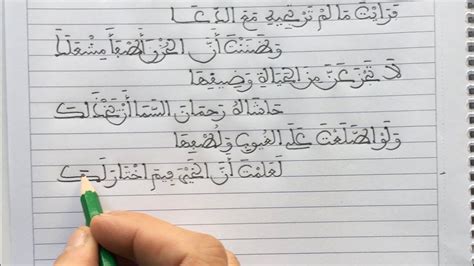 فرأيت ما لم ترتجيه مع الدعا
وظننت أن الحزن أطفأ مشعلا
لا تجزعن من الحياة وضيقها
حاشاه رحمان السما أن يخذلك
ولو اطلعت على الغيوب ولطفها
لعلمت أن الخير فيم اختار لك